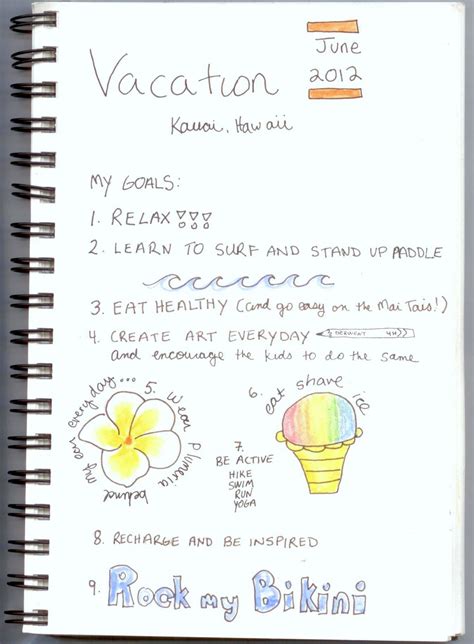 June
2012
Vacation
Kauai, Hawaii
MY GOALS:
1. RELAX!!!
2. LEARN TO SURF AND STAND UP PADDLE
3. EAT HEALTHY (and go easy on the Mai Tais!)
4. CREATE ART EVERYDAY DERWENT 4H
and encourage the kids to do the same
5. Wear Plumeria behind my ear everyday...
6. eat shave ice
7.
BE ACTIVE
HIKE
SWIM
RUN
YOGA
8. RECHARGE AND BE INSPIRED
9. Rock my Bikini